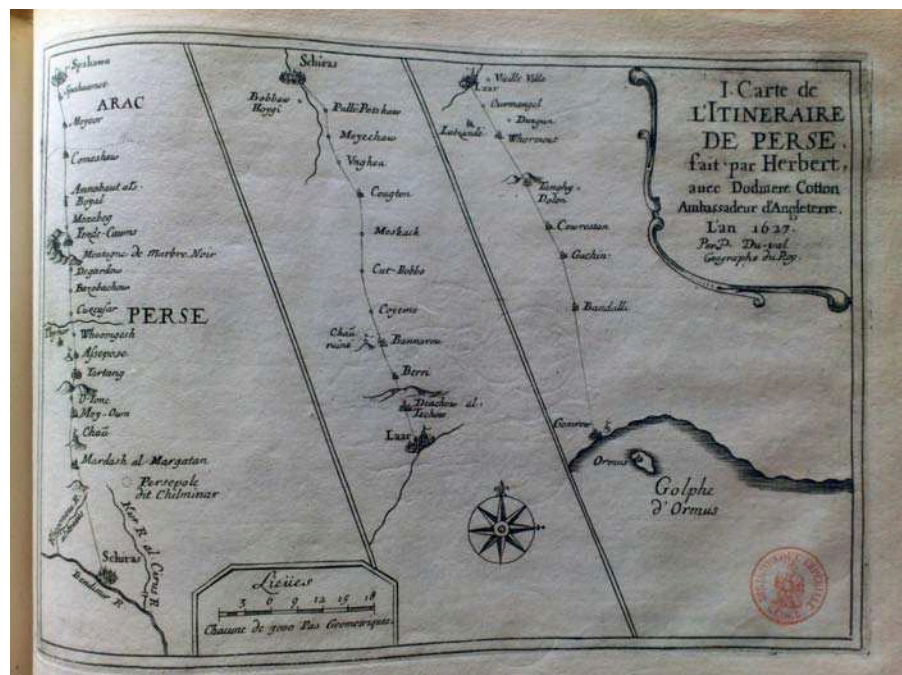 I. Carte de
L'ITINERAIRE
DE PERSE.
fait par Herbert,
auec Dodmere Cotton
Ambassadeur d'Angleterre.
L'an 1627.
Per P. Du-val
Geographe du Roy.
Spahawn
Spahawnet
ARAC
Moyeor
Comeshaw
Annabaut als.
Boyal
Mozebeg
Montagne de Marbre Noir
Degardou
Bazebachow
Cuzcusar
PERSE
Whoomgesh
Assepose
Tartang
Moy-Own
Chaũ
Mardash al Margatan
Persepole
dit Chilminar
Kur R. al. Cirus R.
Schiras
Bendimir R.
Schiras
Bobbaw
Hoygi
Pully Potshaw
Moyechaw
Vnghea
Cougton
Moshack
Cut-Bobbo
Coyoms
Chaũ
ruiné
Bannarou
Berri
Deachow al.
Techow
Laar
Vieille Ville
Laar
Curmangel
Duzgun
Whormout
Tanghy-
Dolon
Cowrestan
Gachin
Bandalli
Gomrou
Ormus
Golphe
d'Ormus
Lieües
3 6 9 12 15 18
Chacune de 3000 Pas Geometriques.